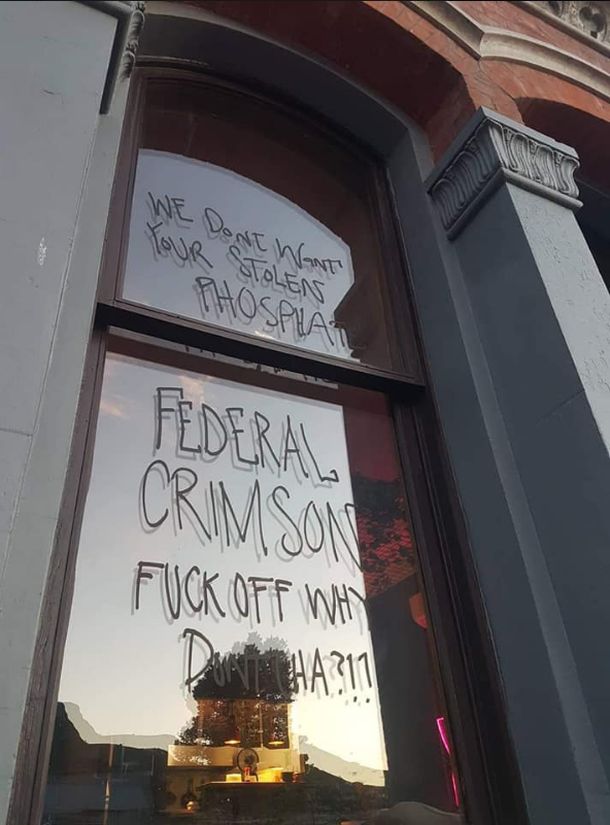 WE DONT WANT
YOUR STOLEN
PHOSPHAT
FEDERAL
CRIMSON
FUCK OFF WHY
DONTCHA?!?